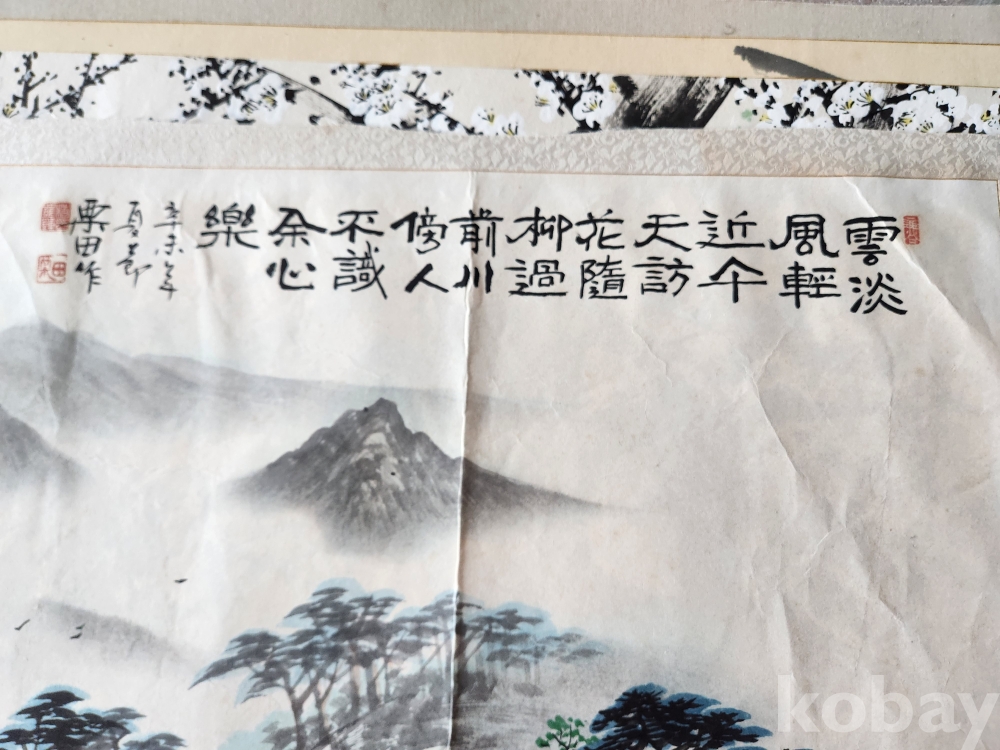 雲淡
風輕
近午
天訪
花隨
柳過
前川
傍人
不識
余心
樂
辛未年
夏節
栗田作
kobay